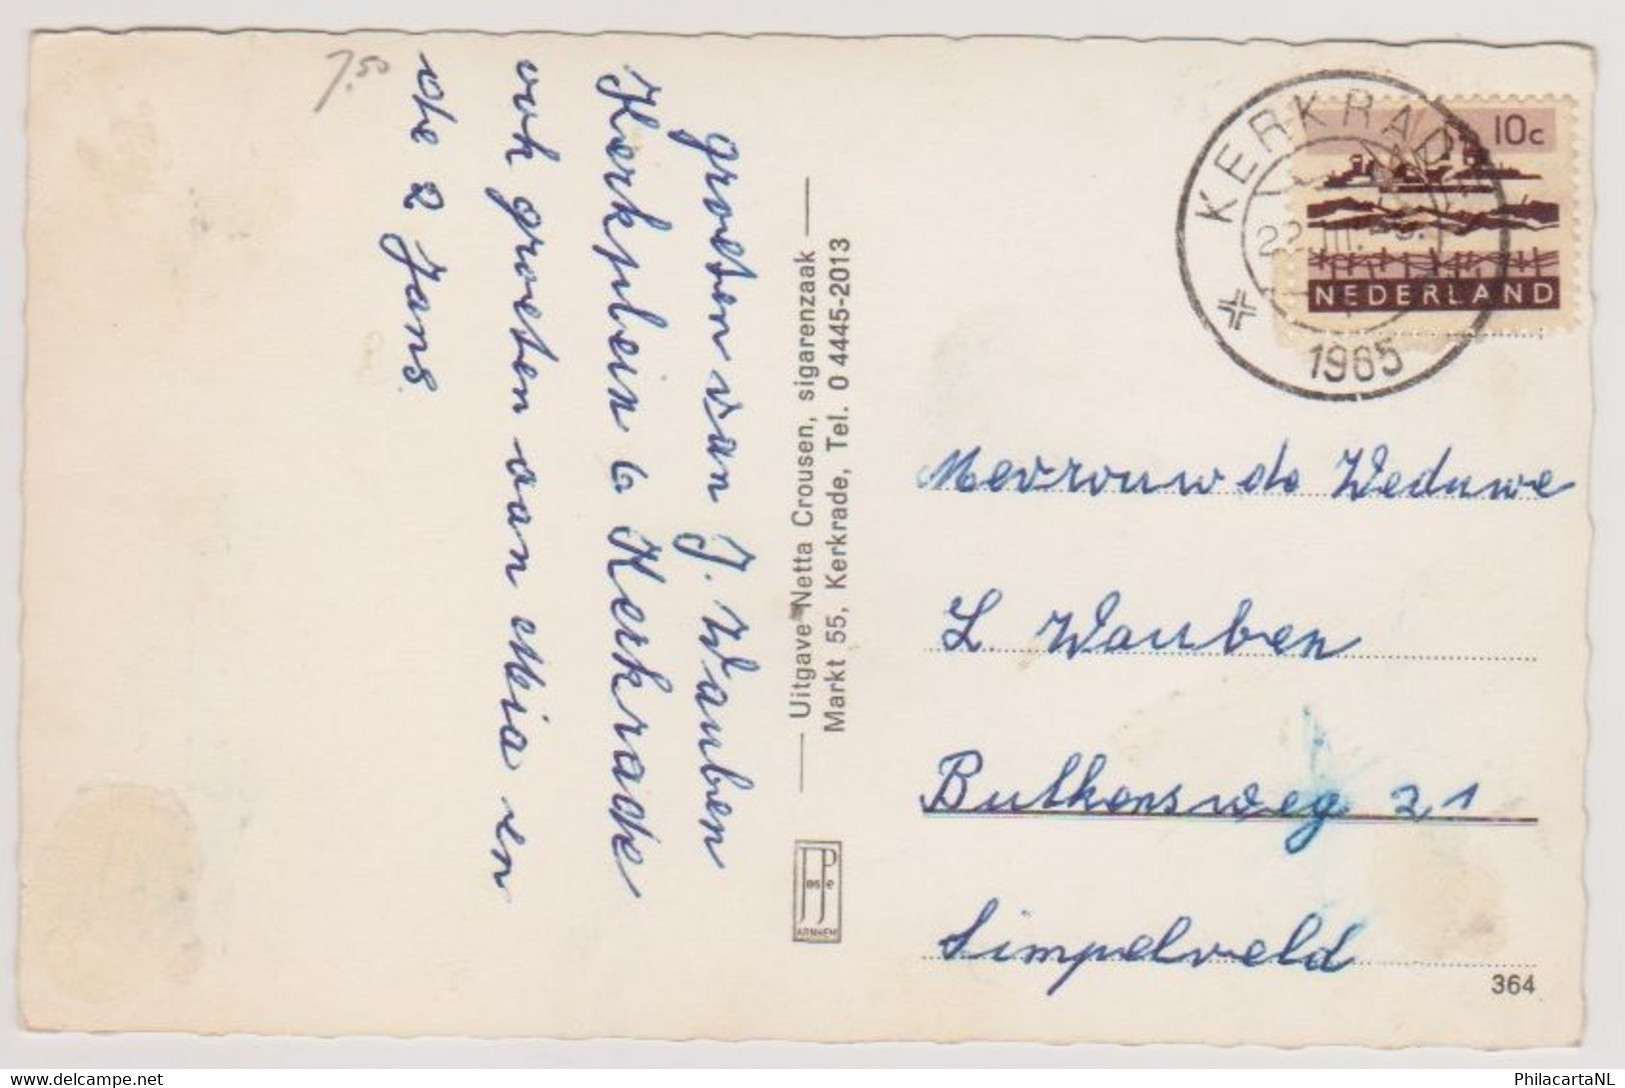 7.50
groeten van J. Wauben
Kerkplein 6 Kerkrade
ook groeten aan Mia en
de 2 Jans
Uitgave Netta Crousen, sigarenzaak
Markt 55, Kerkrade, Tel. 0 4445-2013
JosPe
ARNHEM
KERKRADE
1965
10c
NEDERLAND
Mevrouw de Weduwe
L. Wauben
Bulkensweg 21
Simpelveld
364
www.delcampe.net
PhilacartaNL